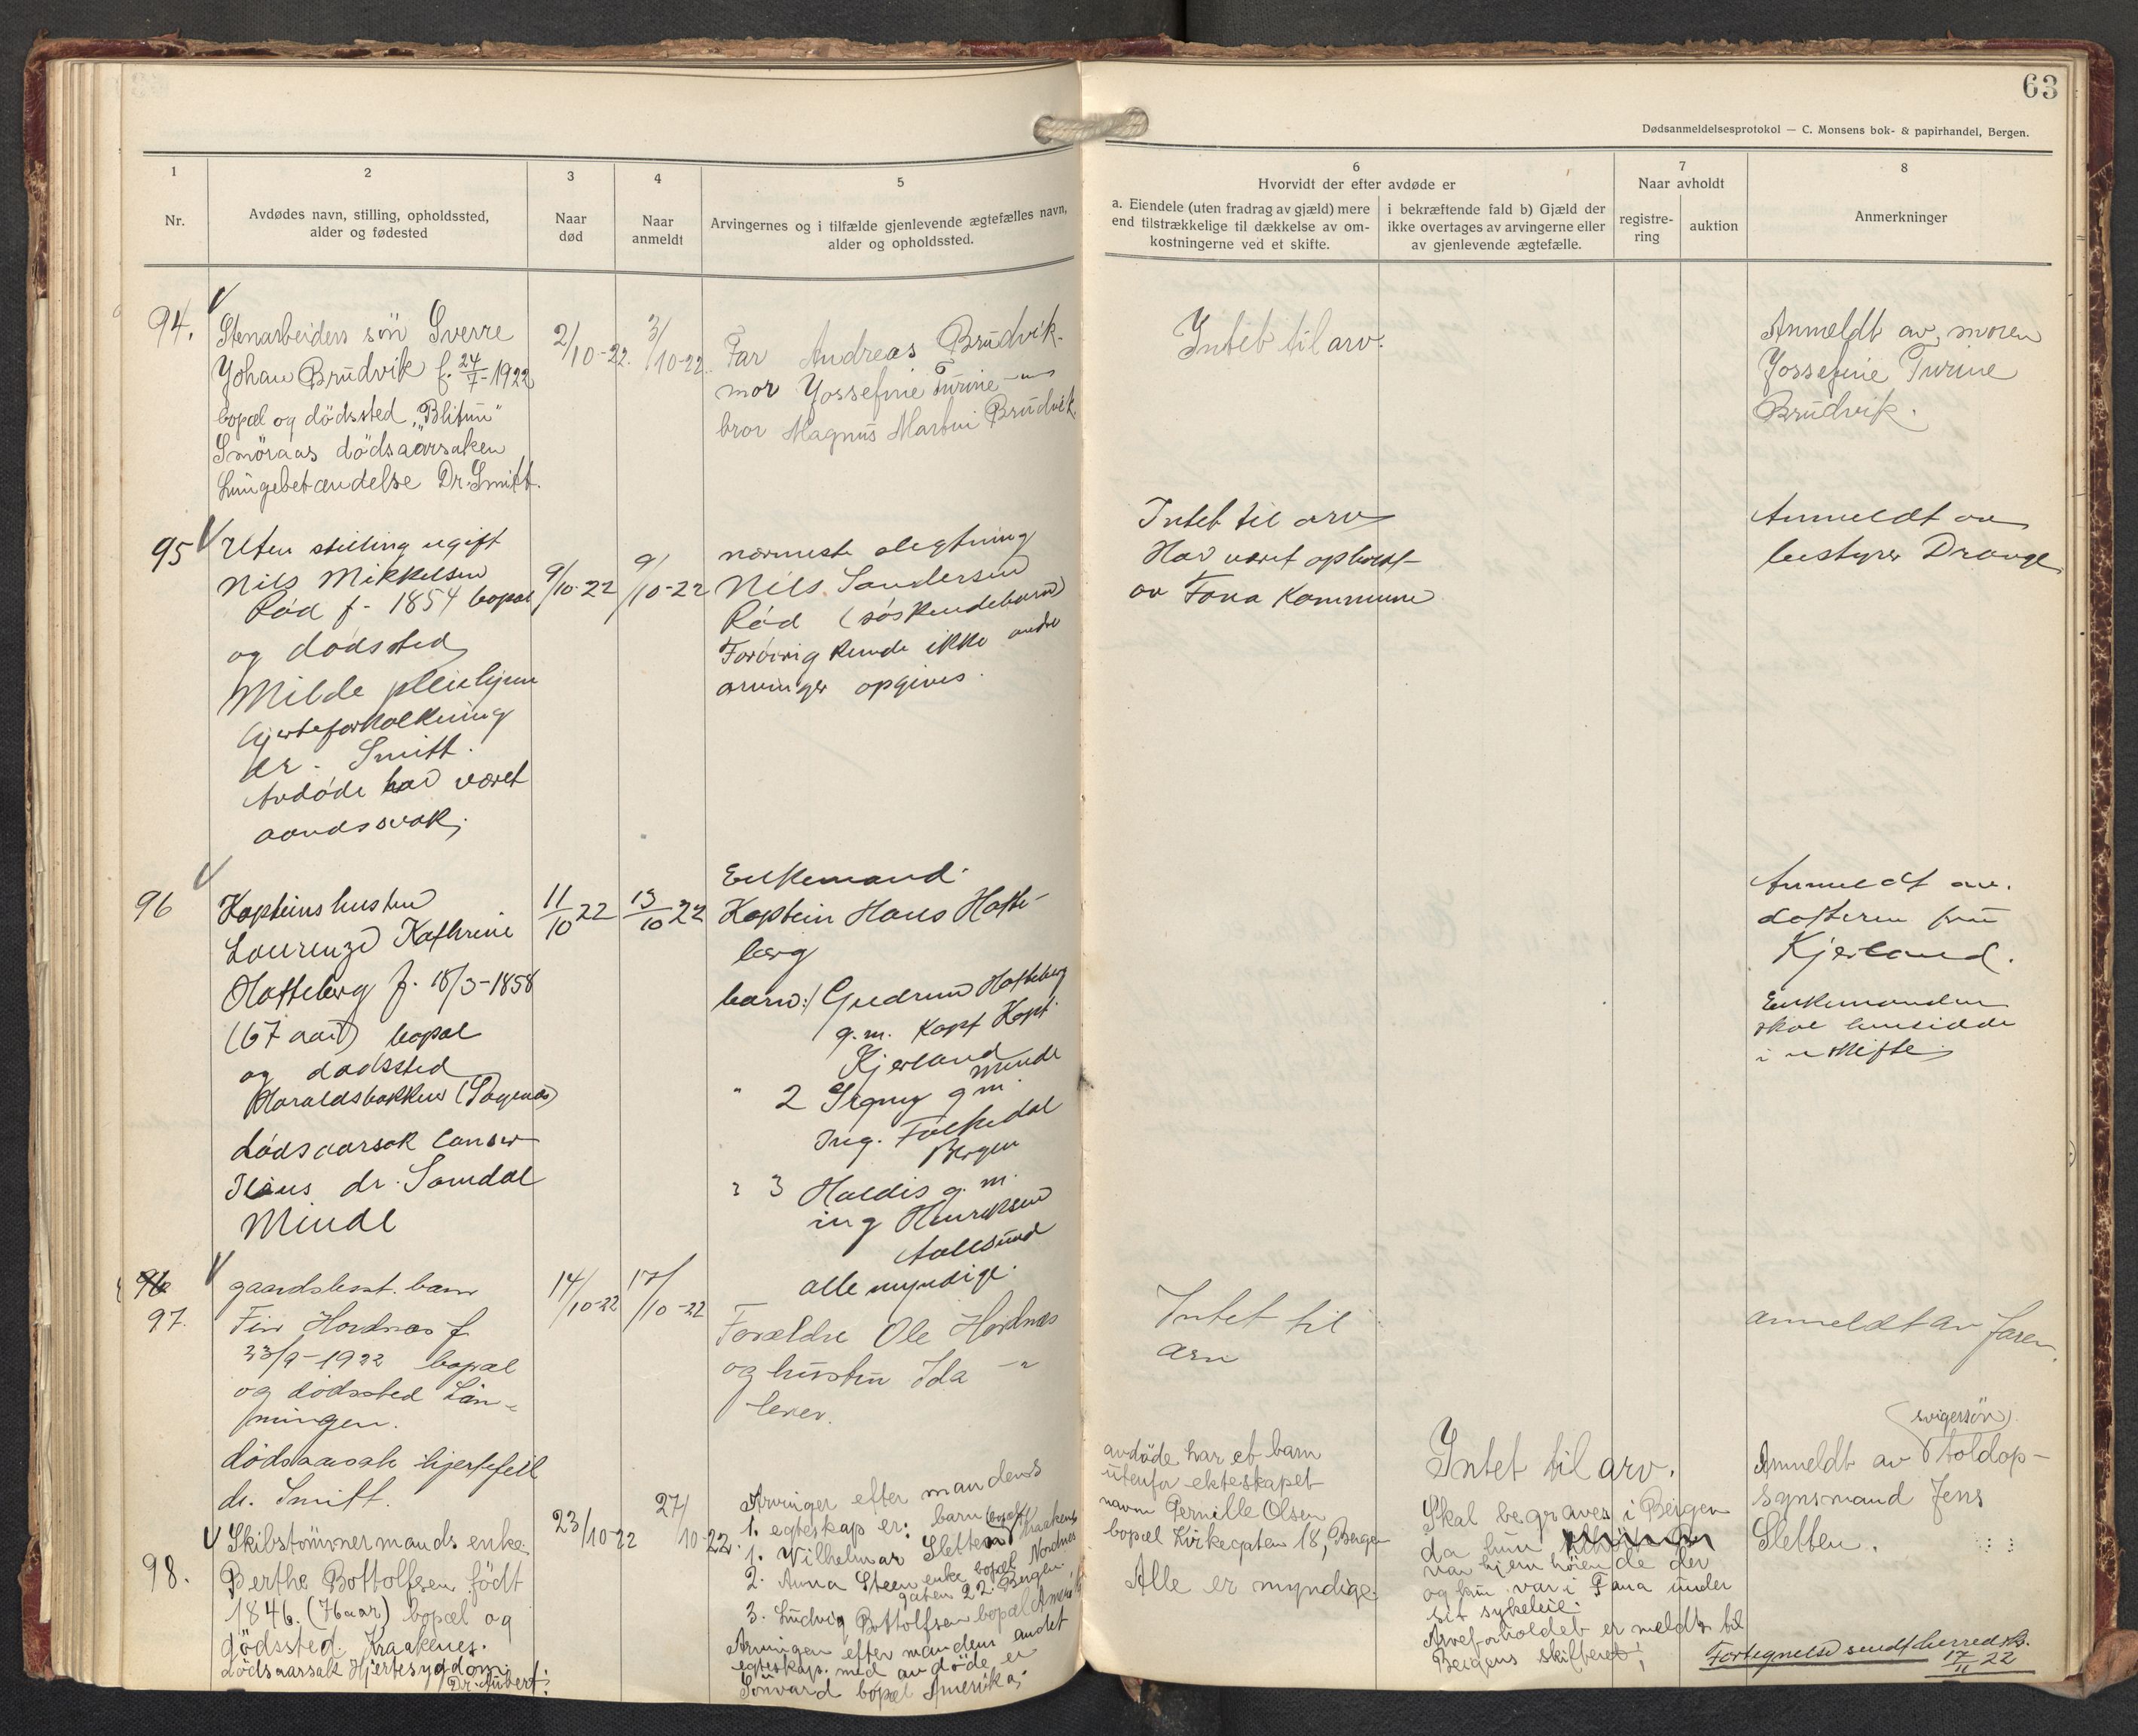 63
Dødsanmeldelsesprotokol — C. Monsens bok- & papirhandel, Bergen.
1
2
3
4
5
6
7
8
Nr.
Avdødes navn, stilling, opholdssted,
alder og fødested
Naar
død
Naar
anmeldt
Arvingernes og i tilfælde gjenlevende ægtefælles navn,
alder og opholdssted.
Hvorvidt der efter avdøde er
a. Eiendele (uten fradrag av gjæld) mere
end tilstrækkelige til dækkelse av om-
kostningerne ved et skifte.
i bekræftende fald b) Gjæld der
ikke overtages av arvingerne eller
av gjenlevende ægtefælle.
Naar avholdt
registre-
ring
auktion
Anmerkninger
94.
Stenarbeiders sön Sverre
Johan Brudvik f. 24/7-1922
bopæl og dödssted "Blitun"
Smöraas dödsaarsaken
Lungebetændelse Dr. Smitt.
2/10-22.
3/10-22.
Far Andreas Brudvik.
mor Jossefine Turine —"—
bror Magnus Martin Brudvik.
Intet til arv.
Anmeldt av moren
Jossefine Turine
Brudvik.
95
Uten stilling ugift
Nils Mikkelsen
Rød f. 1854 bopæl
og dødssted
Milde pleiehjem
hjerteforkalkning
dr. Smitt.
Avdøde har været
aandssvak.
9/10-22
9/10-22
nærmeste slegtning
Nils Sandersen
Rød (søskendebarn)
Forøvrig kunde ikke andre
arvinger opgives.
Intet til arv
Har været opholdt
av Fana Kommune
Anmeldt av
bestyrer Drange
96
Kapteins hustru
Laurenze Kathrine
Hatteberg f. 18/3-1858
(67 aar) bopæl
og dødssted
Haraldsbakken (Søgenæs)
dødsaarsak cancer
dr. Somdal
Minde
11/10 22
13/10 22
Enkemand.
Kaptein Hans Hatte-
berg
barn: 1 Gudrun Hatteberg
g.m. Kapt Kapt.
Kjerland
Minde
" 2 Signy g m.
Ing. Folkedal
Bergen
" 3 Haldis g. m.
ing Henriksen
Aalesund
alle myndige.
Anmeldt av.
datteren fru
Kjerland.
Enkemanden
skal hensidde
i uskifte
96
97.
gaardsbest. barn
Finn Hordnæs f
23/9-1922 bopæl
og dødssted Län-
ningen.
dødsaarsak hjertefeil
dr. Smitt.
14/10-22
17/10-22
Forældre Ole Hordnæs
og hustru Ida —"
lever.
Intet til
arv
anmeldt av faren.
98.
Skibstömmermands enke
Berthe Bottolfsen födt
1846. (76 aar) bopæl og
dödssted. Kraakenes.
dödsaarsak Hjertesygdom.
Dr. Aubert.
23/10-22
27/10-22.
Arvinger efter mandens
1. egteskap er: barn
1. Wilhelmar Sletten bopæl Kraakenes
2. Anna Steen enke bopæl Nordnes
gaten 22. Bergen.
3. Ludvig Bottolfsen bopæl Amerika
Arvingen efter mandens andet
egteskap. med avdöde er
Sönvard bopæl Amerika.
avdöde har et barn
utenfor ekteskapet
navn Pernille Olsen
bopæl Kirkegaten 18, Bergen
Alle er myndige.
Intet til arv.
Skal begraves i Bergen
da hun
var hjemhörende der
og kun var i Fana under
sit sykeleie.
Arveforholdet er meldt til
Bergens skifteret.
(svigersön)
Anmeldt av toldop-
synsmand Jens
Sletten.
Fortegnelse sendt herredsk.
17/11 22